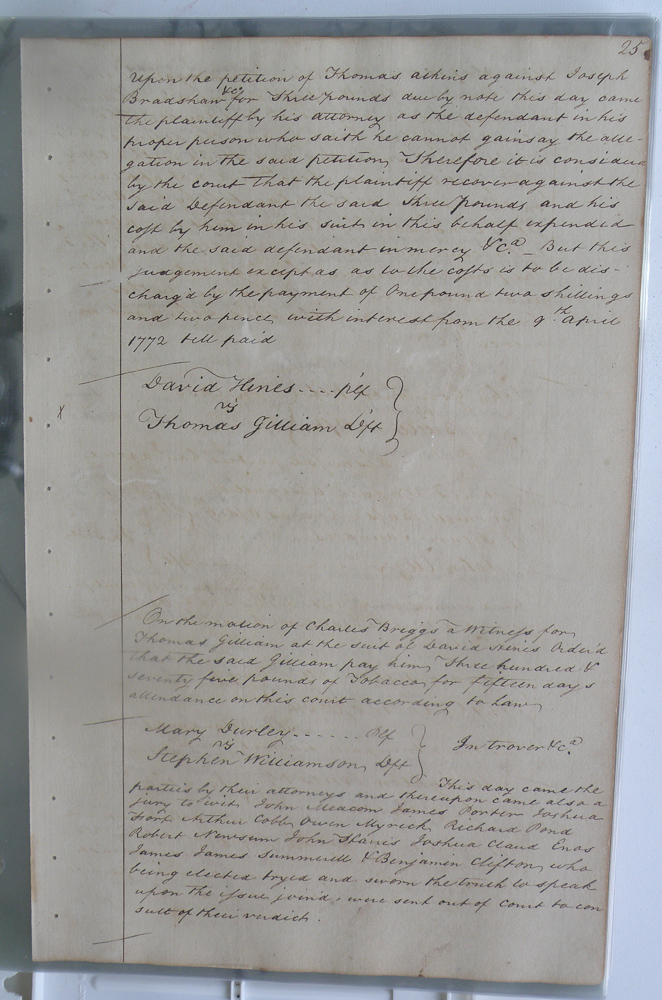 25
Upon the petition of Thomas atkins against Joseph
Bradshaw &c. for three pounds due by note this day came
the plaintiff by his attorney as the defendant in his
proper person who saith he cannot gainsay the alle-
gation in the said petition, Therefore it is considered
by the court that the plaintiff recover against the
said Defendant the said three pounds and his
cost by him in his suit in this behalf expended
and the said defendant in mercy &c.a - But this
judgement except as as to the costs is to be dis-
charg'd by the payment of One pound two shillings
and two pence, with interest from the 9th april
1772 till paid
David Hines .... plf }
vs
Thomas Gilliam Deft
x
On the motion of Charles Briggs a Witness for
Thomas Gilliam at the suit of David Hines Order'd
that the said Gilliam pay him Three hundred &
seventy five pounds of Tobacco, for fifteen days
attendance on this court according to Law,
Mary Durley ...... Plf }
vs In trover &c.a
Stephen Williamson, Deft
This day came the
parties by their attorneys and thereupon came also a
jury to wit, John Meacom James Porter Joshua
Fort Arthur Cobb Owen Myrick, Richard Pond
Robert Newsum John Joshua Claud Enos
James James Summerell & Benjamin Clifton, who
being elected tryed and sworn the truth to speak
upon the issue joind, were sent out of Court to con
sult of their verdict.